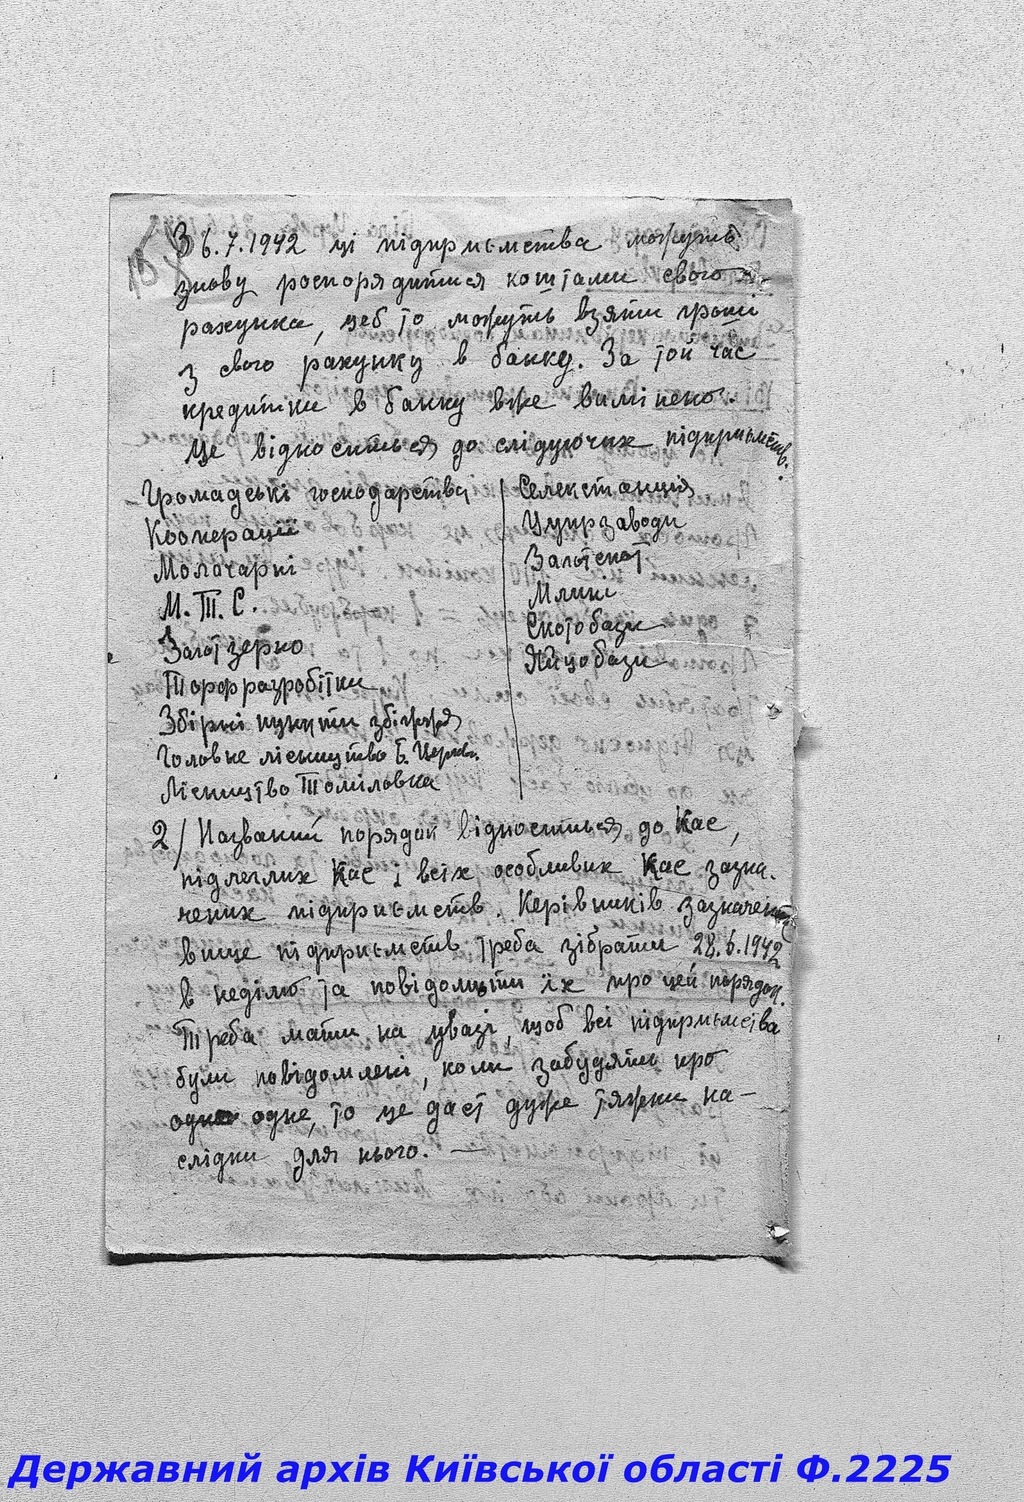 З 6.7.1942 ці підприємства можуть
знову роспорядитися коштами свого
рахунка, цеб то можуть взяти гроші
з свого рахунку в банку. За той час
кредитки в банку вже вимінено.
Це відноситься до слідуючих підприємств.
Громадські господарства
Кооперації
Молочарні
М. Т. С.
Заготзерно
Торфразробітки
Збірні пункти збіжжя
Головне лісництво Б. Церкв.
Лісництво Томіловка
Селекстанція
Цукрзаводи
Заготскот
Млини
Скотобази
Яйцобази
2/ Названий порядок відноситься до Кас,
підлеглих Кас і всіх особливих Кас зазна-
чених підприємств. Керівників зазначених
вище підприємств треба зібрати 28.6.1942
в неділю та повідомити їх про цей порядок.
Треба мати на увазі, щоб всі підприємства
були повідомлені, коли забудять про
одне, то це даст дуже тяжки на-
слідки для нього. —
Державний архів Київської області Ф.2225